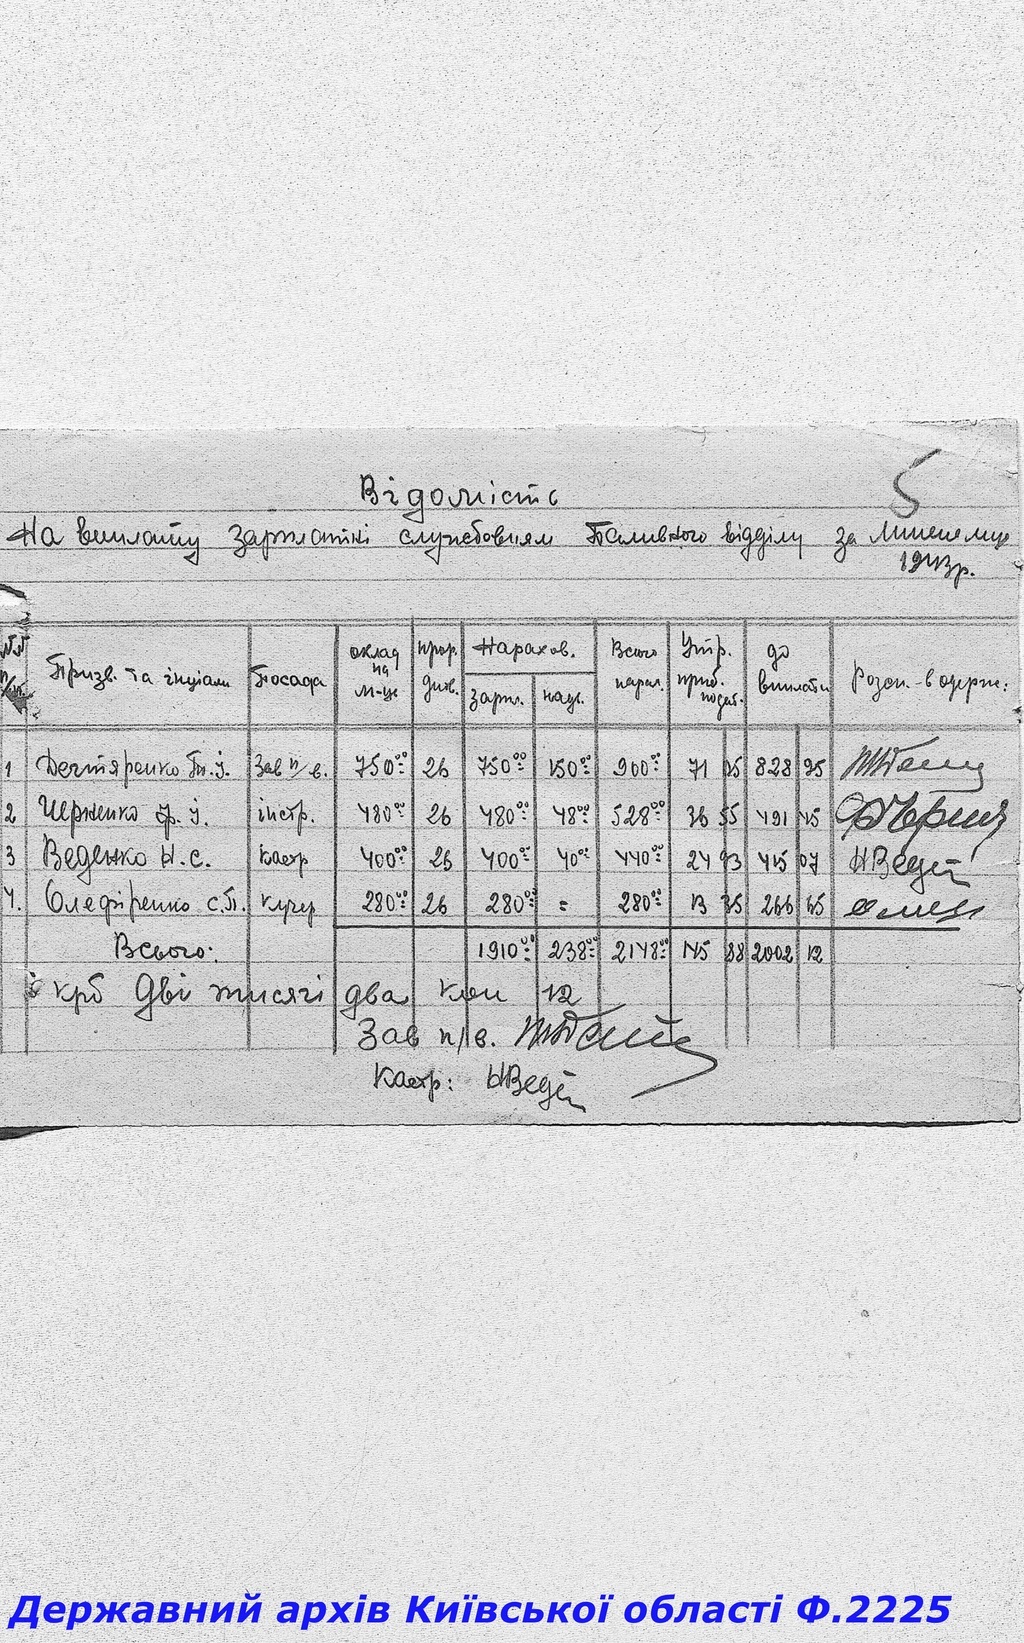 5
Відомість
На виплату зарплатні службовцям Паливного відділу за Липень м-ць
1943р.
№№ п/п Призв. та ініціали Посада оклад на м-ць прор. днів. Нарахов. зарпл. надв. Всього нарах. Утр. приб. подат. до виплати Розп. в одерж:
1 Дегтяренко П.І. Зав п/в. 750 00 26 750 00 150 00 900 00 71 05 828 95
2 Черненко Ф.І. інстр. 480 00 26 480 00 48 00 528 00 36 55 491 45
3 Веденко Н.С. касир 400 00 26 400 00 40 00 440 00 24 93 415 07
4. Олефіренко С.П. кучер 280 00 26 280 00 = 280 00 13 35 266 65
Всього: 1910 00 238 00 2148 00 145 88 2002 12
крб Дві тисячі два коп 12
Зав п/в.
Касир: НВеде
Державний архів Київської області Ф.2225